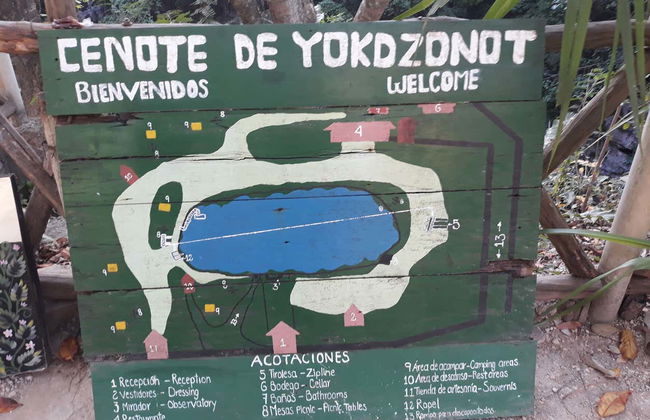 CENOTE DE YOKDZONOT
BIENVENIDOS
WELCOME
8
9
9
7
6
4
8
10
9
5
13
8
12
9
10
2
3
9
11
9
2
11
1
ACOTACIONES
1 Recepción - Reception
2 Vestidores - Dressing
3 Mirador - Observatory
4 Restaurante
5 Tirolesa - Zipline
6 Bodega - Cellar
7 Baños - Bathrooms
8 Mesas Picnic - Picnic Tables
9 Área de acampar - Camping areas
10 Área de descanso - Rest areas
11 Tienda de artesanía - Souvenirs
12 Rapel
13 Rampa para discapacitados